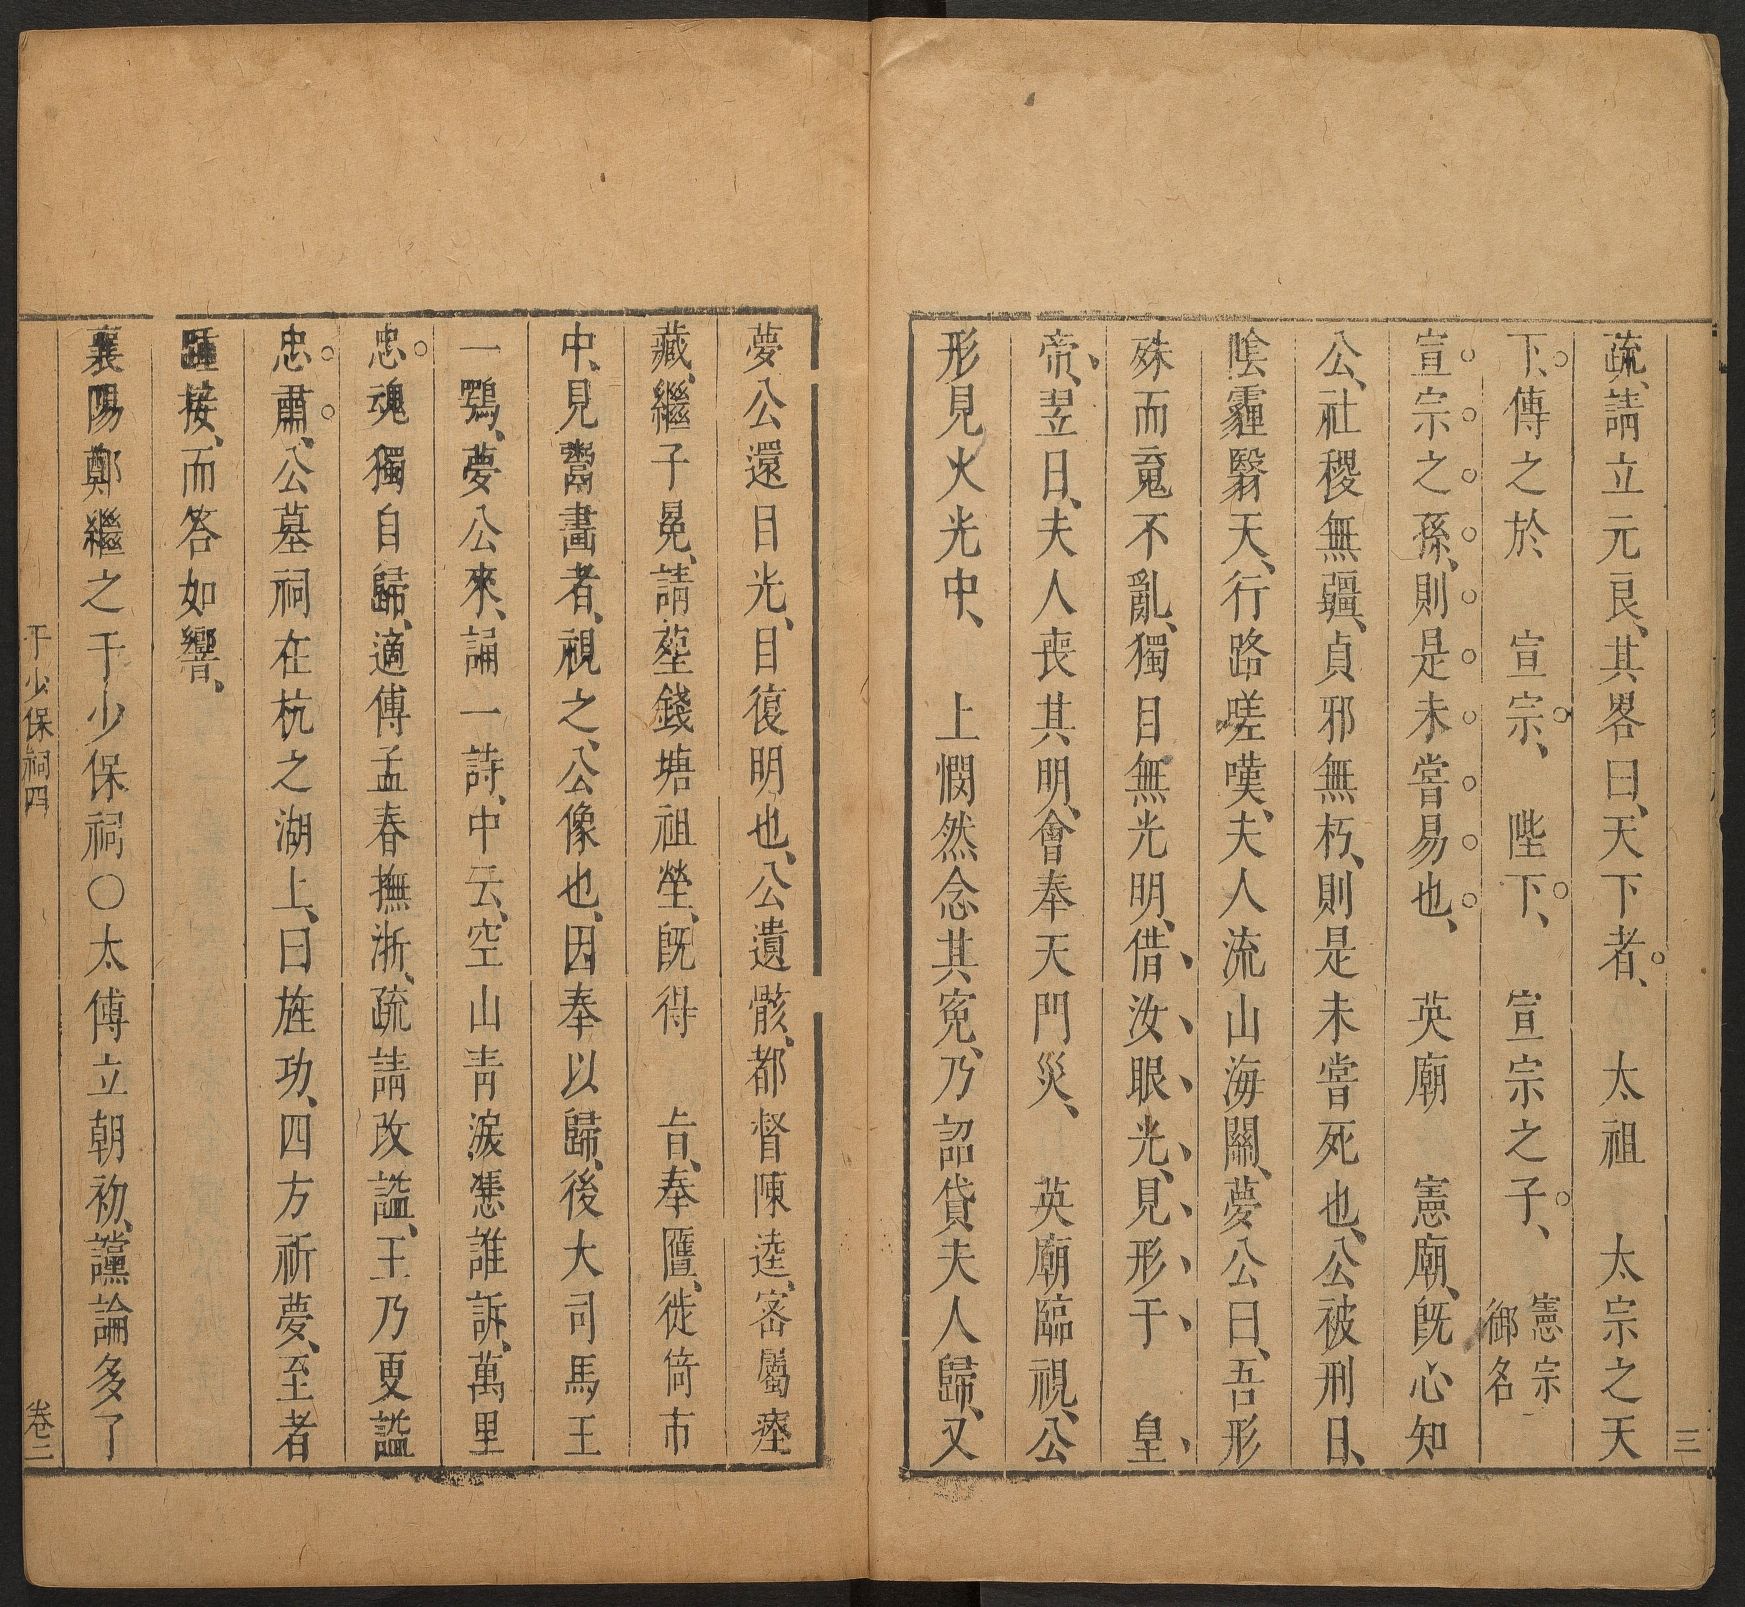 疏、請立元良、其畧曰、天下者、太祖太宗之天
下、傳之於宣宗、陛下、宣宗之子、憲宗御名
宣宗之孫、則是未嘗易也、英廟憲廟、旣心知
公、社稷無疆、貞邪無朽、則是未嘗死也、公被刑日、
陰霾翳天、行路嗟嘆、夫人流山海關、夢公曰、吾形
殊而䰟不亂、獨目無光明、借汝眼光、見形于皇
帝、翌日、夫人喪其明、會奉天門災、英廟臨視、公
形見火光中、上憫然念其寃、乃詔貸夫人歸、又
三
夢公還目光、目復明也、公遺骸、都督陳逵、密屬瘞
藏、繼子冕、請塟錢塘祖塋、旣得旨、奉匶、徙倚市
中、見鬻畫者、視之、公像也、因奉以歸、後大司馬王
一鶚、夢公來、誦一詩、中云、空山靑淚慿誰訴、萬里
忠魂獨自歸、適傅孟春撫浙、疏請改諡、王乃更諡
忠肅、公墓祠在杭之湖上、曰旌功、四方祈夢、至者
踵接、而答如響、
襄陽鄭繼之于少保祠○太傅立朝初、讜論多了
于少保祠四
卷二